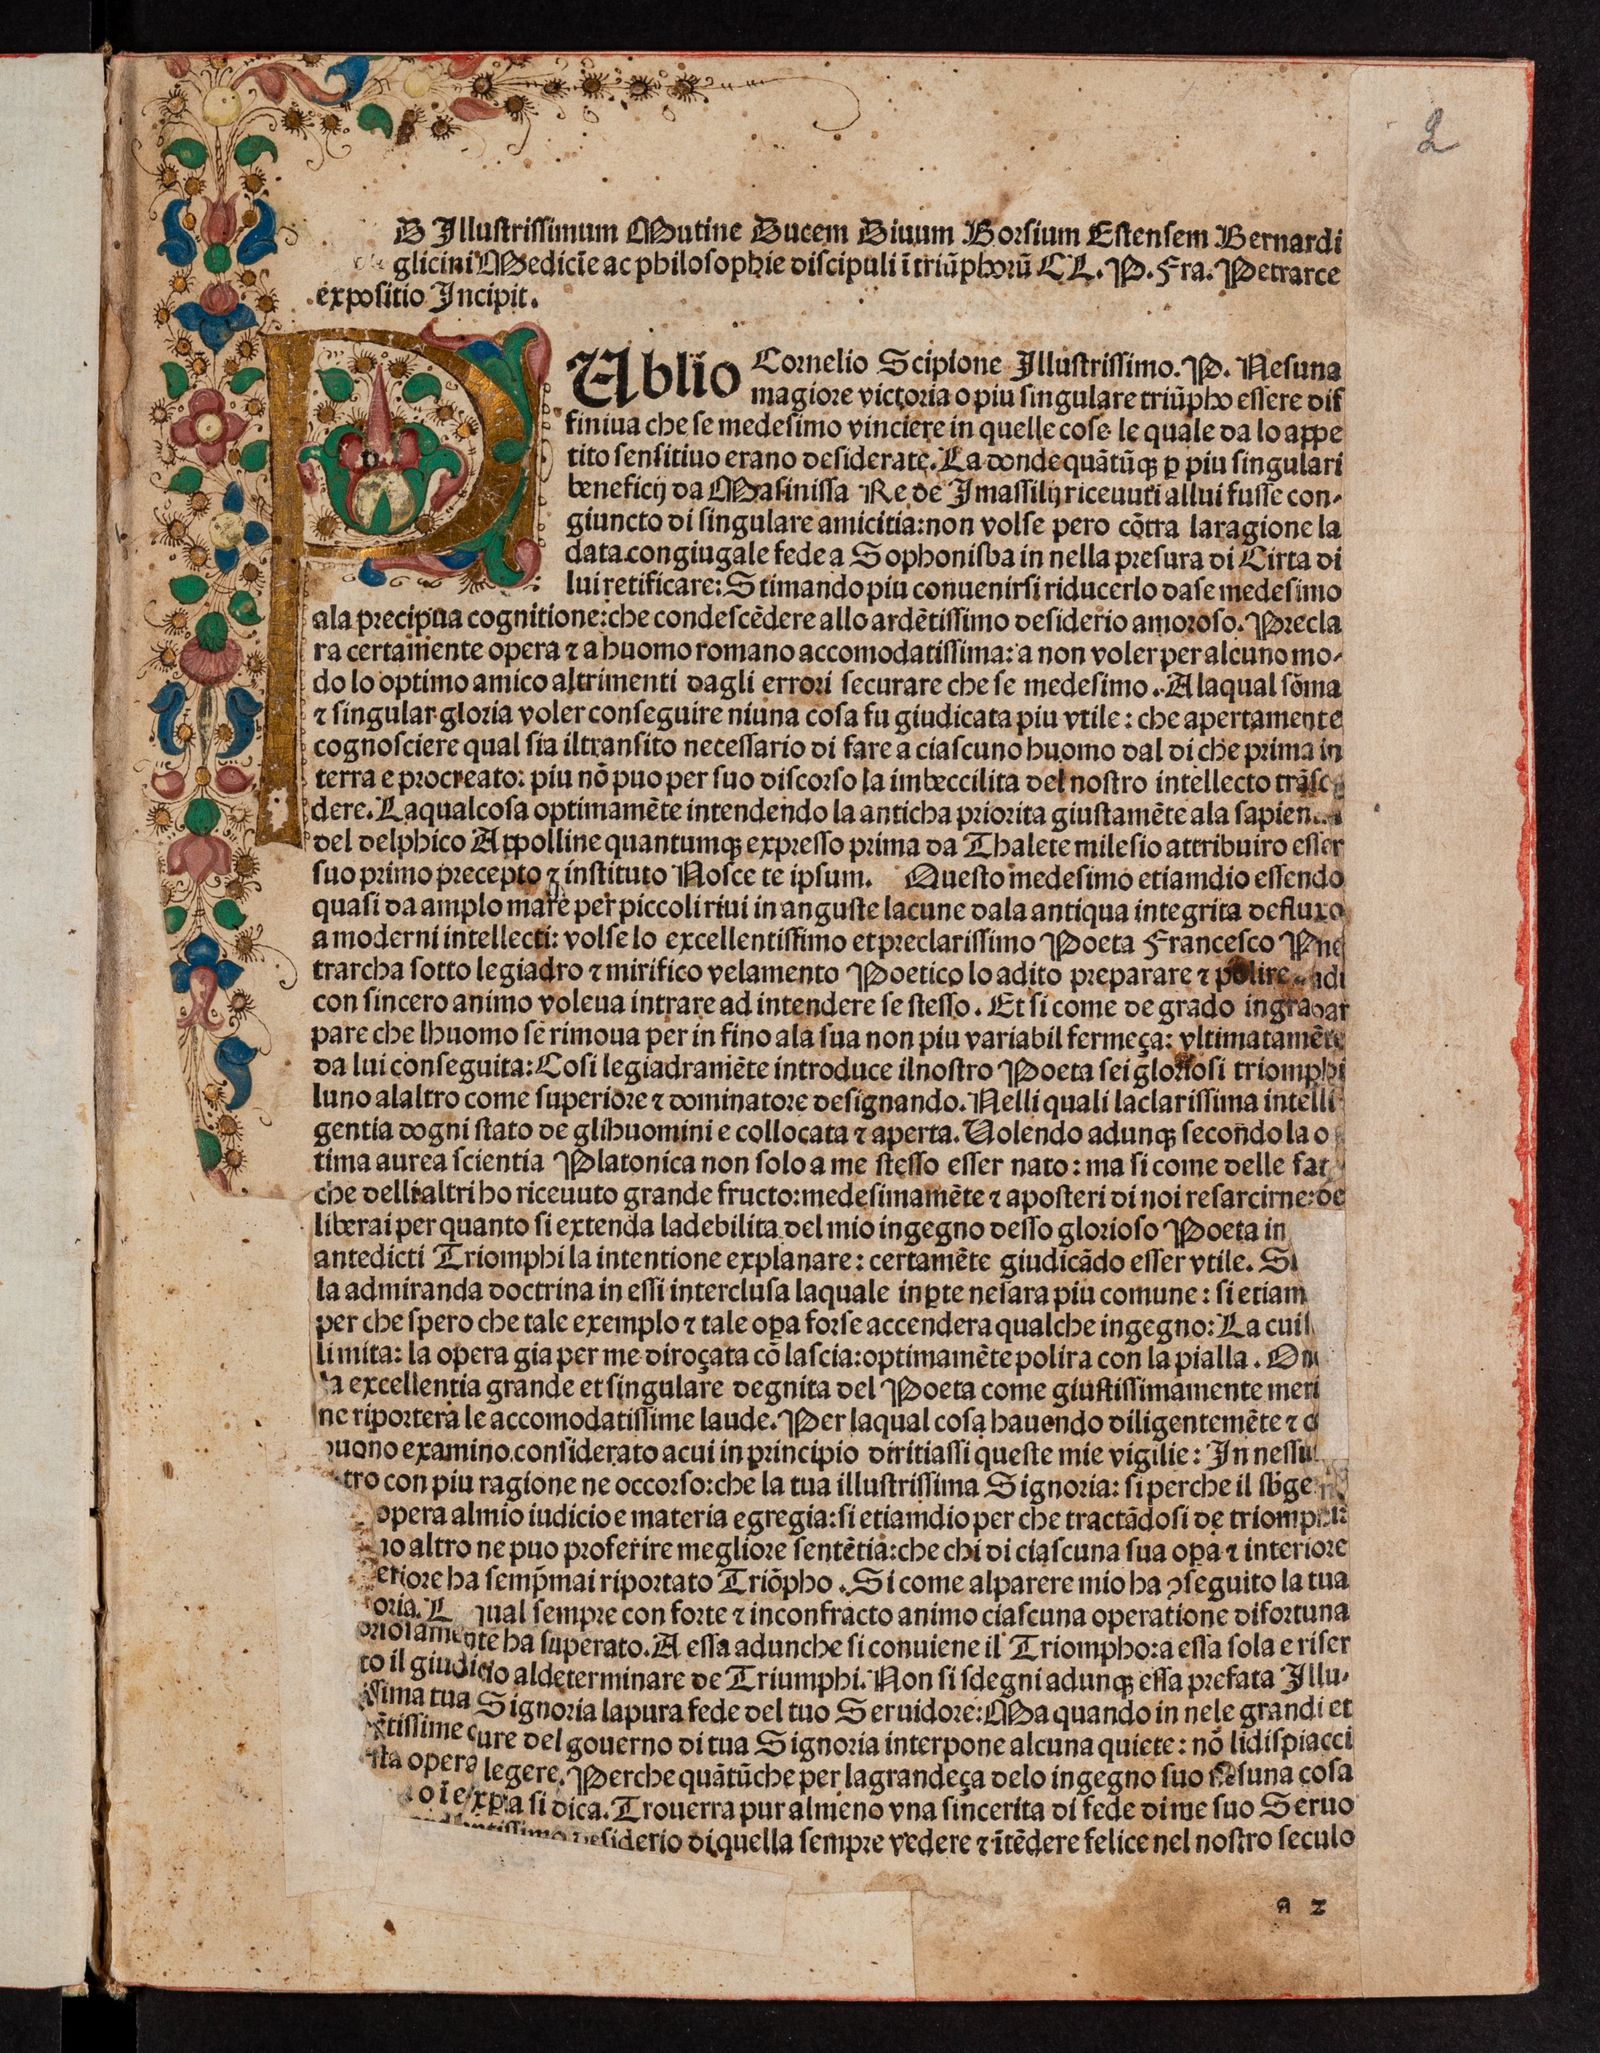 2
D Illustrissimum Mutine Ducem Diuum Borsium Estensem Bernardi
glicini Medicīe ac philosophie discipuli ī triūphorū CL. P. Fra. Petrarce
expositio Incipit.
PUblio Cornelio Scipione Illustrissimo. P. Nesuna
magiore victoria o piu singulare triūpho essere dif
finiua che se medesimo vinciere in quelle cose le quale da lo appe
tito sensitiuo erano desiderate. La donde quātūqꝫ ꝑ piu singulari
beneficij da Masinissa Re de Imassilij riceuuti allui fusse con-
giuncto di singulare amicitia: non volse pero cōtra laragione la
data congiugale fede a Sophonisba in nella presura di Cirta di
lui retificare: Stimando piu conuenirsi riducerlo dase medesimo
ala precipua cognitione: che condescēdere allo ardētissimo desiderio amoroso. Precla
ra certamente opera ⁊ a huomo romano accomodatissima: a non voler per alcuno mo-
do lo optimo amico altrimenti dagli errori securare che se medesimo. A laqual sōma
⁊ singular gloria voler conseguire niuna cosa fu giudicata piu vtile: che apertamente
cognosciere qual sia iltransito necessario di fare a ciascuno huomo dal di che prima in
terra e procreato: piu nō puo per suo discorso la imbeccilita del nostro intellecto trāsc
dere. Laqualcosa optimamēte intendendo la anticha priorita giustamēte ala sapien
del delphico Appolline quantumqꝫ expresso prima da Thalete milesio attribuiro esser
suo primo precepto ⁊ instituto Nosce te ipsum. Questo medesimo etiamdio essendo
quasi da amplo mare per piccoli riui in anguste lacune dala antiqua integrita defluxo
a moderni intellecti: volse lo excellentissimo et preclarissimo Poeta Francesco P
trarcha sotto legiadro ⁊ mirifico velamento Poetico lo adito preparare ⁊ polire
con sincero animo voleua intrare ad intendere se stesso. Et si come de grado ingra
pare che lhuomo se rimoua per in fino ala sua non piu variabil fermeça: vltimatamēte
da lui conseguita: Cosi legiadramēte introduce ilnostro Poeta sei gloriosi triomphi
luno alaltro come superiore ⁊ dominatore designando. Nelli quali laclarissima intelli
gentia dogni stato de glihuomini e collocata ⁊ aperta. Uolendo adunqꝫ secondo la o
tima aurea scientia Platonica non solo a me stesso esser nato: ma si come delle fat
che delli altri ho riceuuto grande fructo: medesimamēte ⁊ aposteri di noi resarcirne: de
liberai per quanto si extenda ladebilita del mio ingegno desso glorioso Poeta in
antedicti Triomphi la intentione explanare: certamēte giudicādo esser vtile. Si
la admiranda doctrina in essi interclusa laquale inꝑte nesara piu comune: si etiam
per che spero che tale exemplo ⁊ tale oꝑa forse accendera qualche ingegno: La cui
limita: la opera gia per me diroçata cō lascia: optimamēte polira con la pialla.
la excellentia grande et singulare degnita del Poeta come giustissimamente meri
ne riportera le accomodatissime laude. Per laqual cosa hauendo diligentemēte ⁊
buono examino considerato a cui in principio diritiassi queste mie vigilie: In nessu
tro con piu ragione ne occorso: che la tua illustrissima Signoria: si perche il sbge
opera almio iudicio e materia egregia: si etiamdio per che tractādosi de triomphi:
no altro ne puo proferire megliore sentētia: che chi di ciascuna sua oꝑa ⁊ interiore
eriore ha semp̄mai riportato Triōpho. Si come alparere mio ha ꝯseguito la tua
oria. L qual sempre con forte ⁊ inconfracto animo ciascuna operatione difortuna
oriosamente ha superato. A essa adunche si conuiene il Triompho: a essa sola e riser
to il giudicio aldeterminare de Triumphi. Non si sdegni adunqꝫ essa prefata Illu-
ssima tua Signoria lapura fede del tuo Seruidore: Ma quando in nele grandi et
ētissime cure del gouerno di tua Signoria interpone alcuna quiete: nō lidispiacci
sta opera legere. Perche quātūche per lagrandeça delo ingegno suo nesuna cosa
o i exꝑa si dica. Trouerra pur almeno vna sincerita di fede dime suo Seruo
desiderio diquella sempre vedere ⁊ ītēdere felice nel nostro seculo
a 2